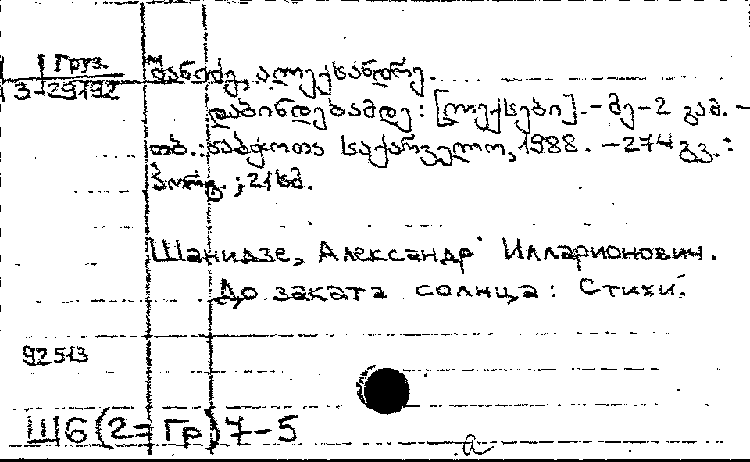 Груз.
3-29192
შანიძე, ალექსანდრე.
დაბინდებამდე: [ლექსები]. - მე-2 გამ. -
თბ.: საბჭოთა საქართველო, 1988. - 274 გვ.:
პორტ.; 21 სმ.
Шанидзе, Александр Илларионович.
До заката солнца: Стихи.
92513
Ш6(2=Гр)7-5
a